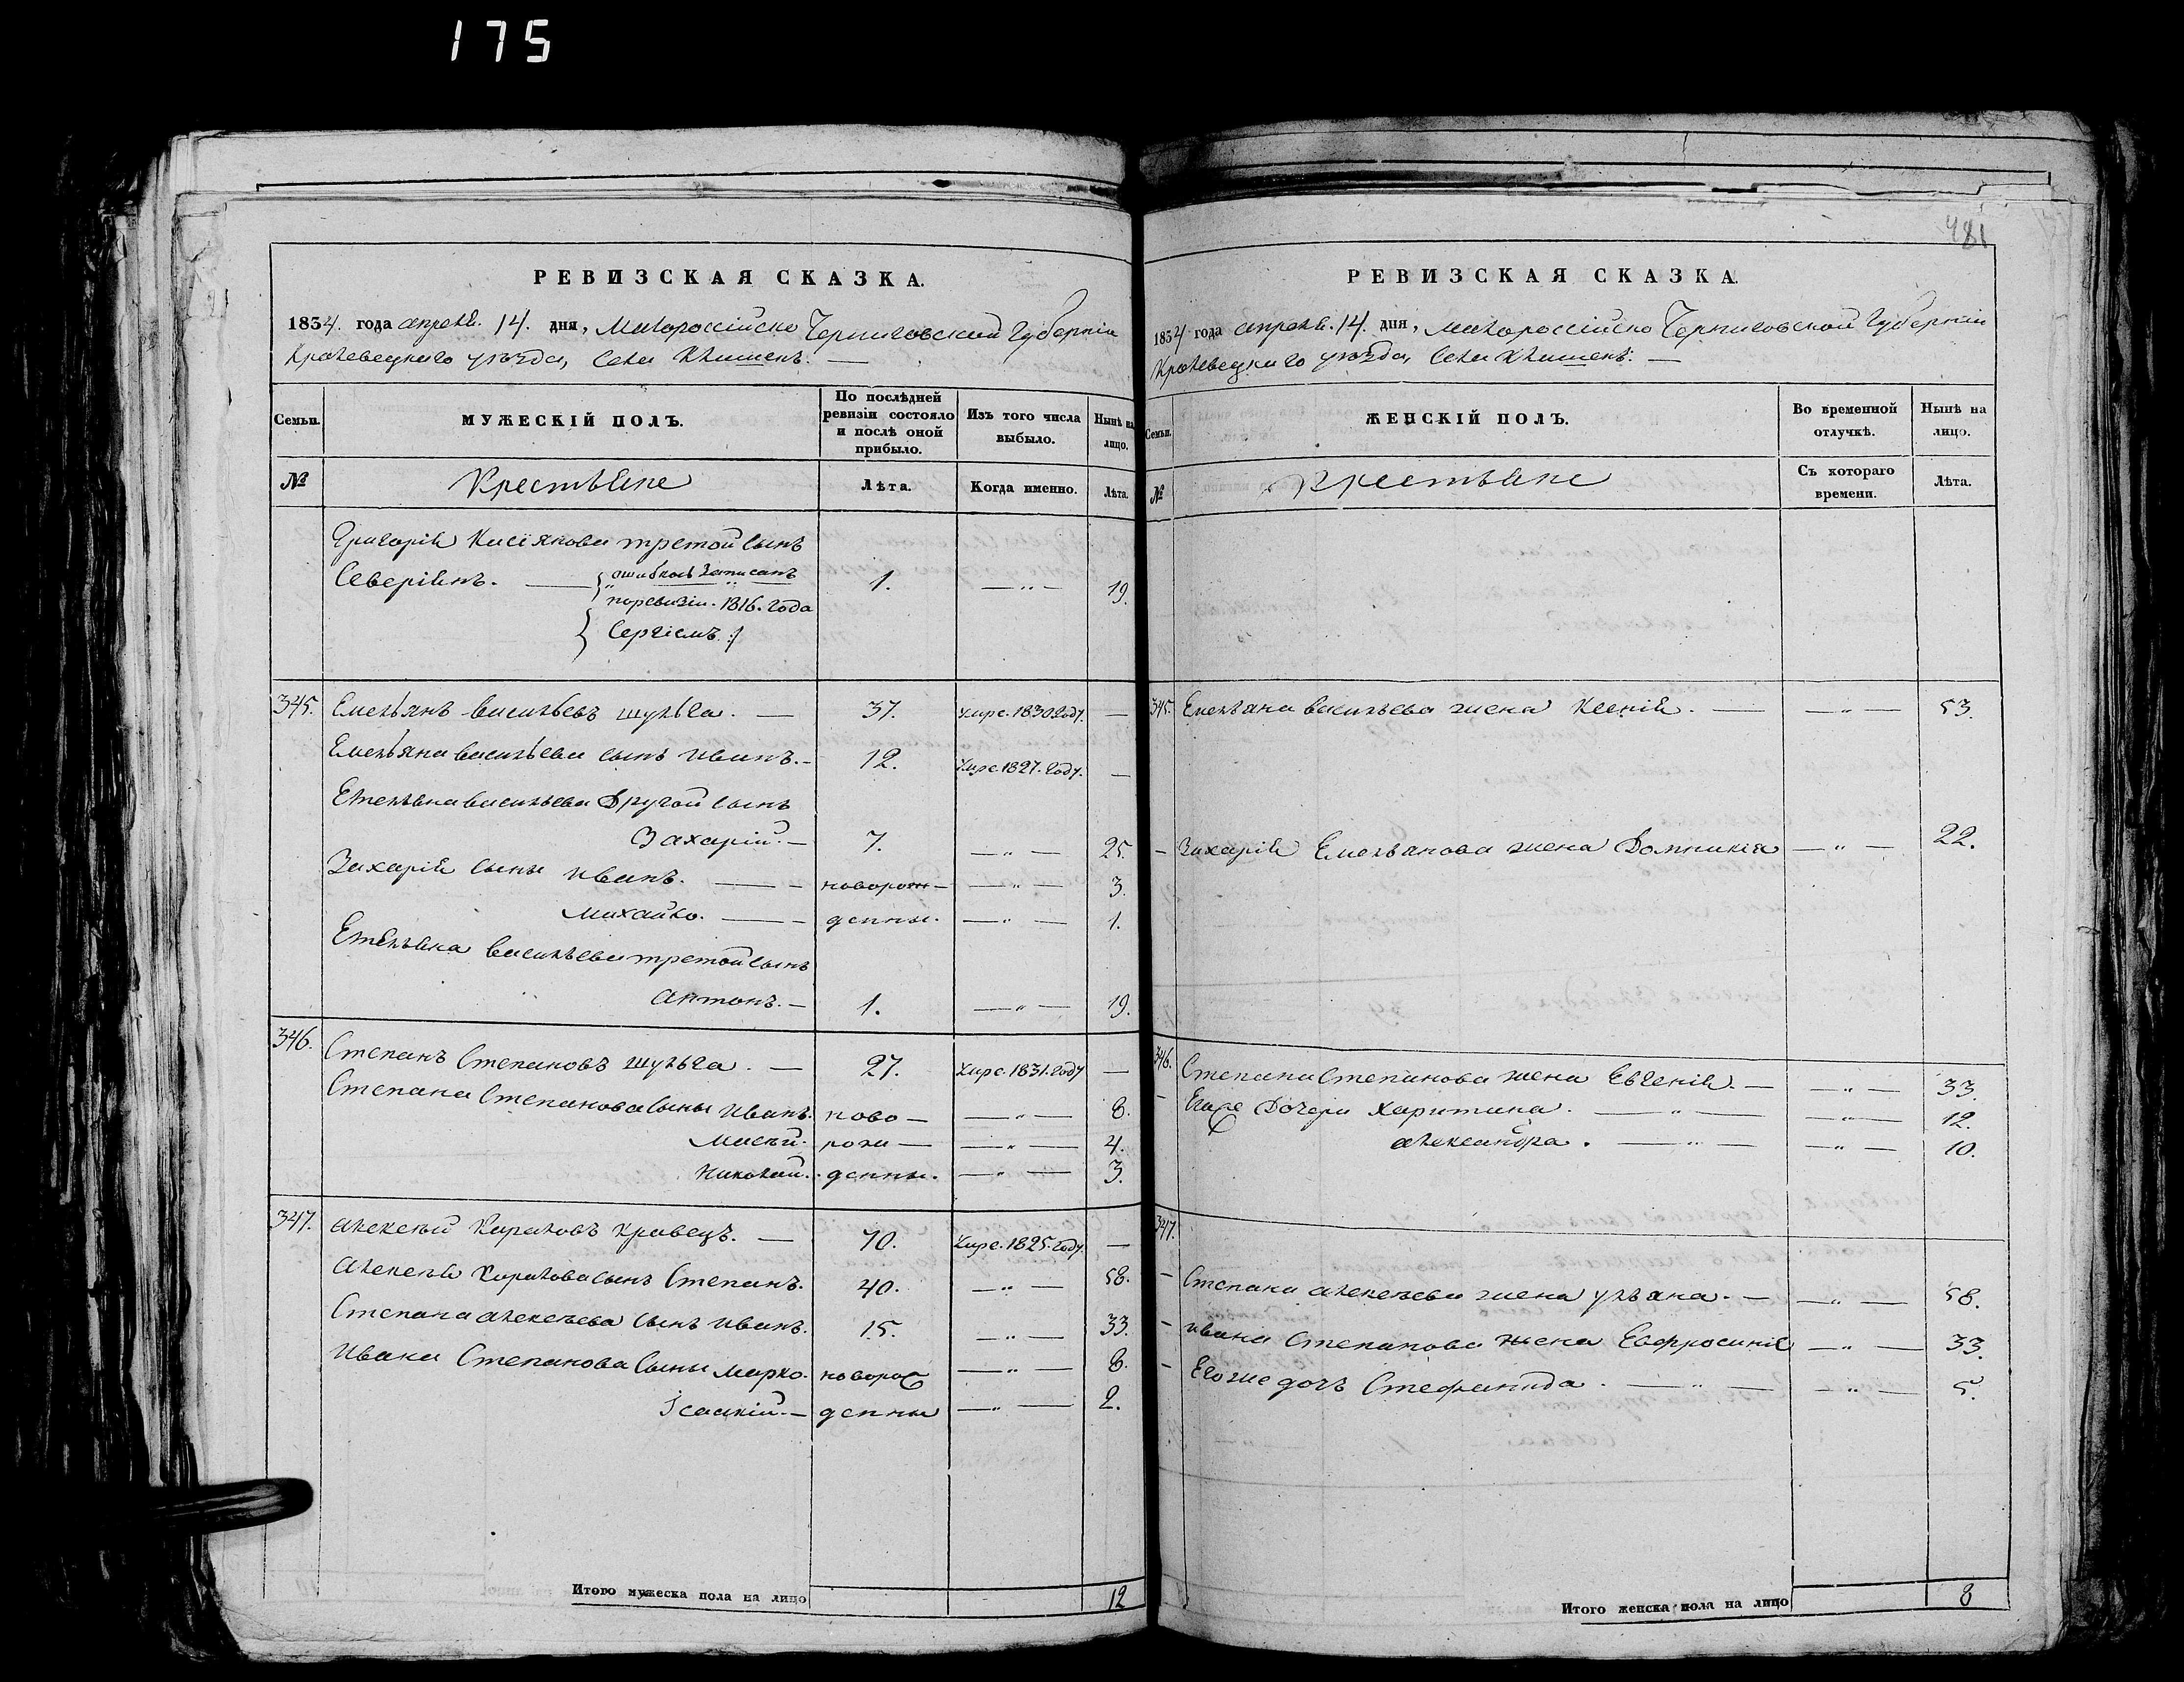 175
РЕВИЗСКАЯ СКАЗКА.
1834. года апреля. 14. дня, Малороссійско Черниговской Губерніи
Кролевецкаго уѣзда, Села Клишекъ. —
Семьи.
МУЖЕСКІЙ ПОЛЪ.
По послѣдней ревизіи состояло и послѣ оной прибыло.
Изъ того числа выбыло.
Нынѣ на лицо.
№
Крестьяне
Лѣта.
Когда именно.
Лѣта.
Григорія Касіянова третой сынъ
Северіянъ. — ошибкою записанъ 1. — „ — 19.
по ревизіи. 1816. года
Сергіемъ
345. Емельянъ Васильевъ шульга. — 37. умре. 1830 году. —
Емельяна Васильева сынъ Иванъ. — 12. умре. 1827. году. —
Емельяна Васильева Другой сынъ
Захарій. — 7. — „ — 25.
Захарія сыны Иванъ. — новорож— — „ — 3.
Михайло. — денны. — „ — 1.
Емельяна Васильева третой сынъ
Антонъ. — 1. — „ — 19.
346. Степанъ Степановъ шульга. — 27. умре. 1831. году —
Степана Степанова Сыны Иванъ. ново— — „ — 8.
Мисѣй. рож— — „ — 4.
Николай. денны. — „ — 3.
347. Алексѣй Кириловъ Кравецъ. — 70. умре. 1825. году —
Алексѣя Кирилова сынъ Степанъ. 40. — „ — 58.
Степана Алексѣева Сынъ Иванъ. 15. — „ — 33.
Ивана Степанова Сыны Марко. новорож — „ — 8.
Ісаакій. — денны — „ — 2.
Итого мужеска пола на лицо 12
481
РЕВИЗСКАЯ СКАЗКА.
1834 года апреля. 14. дня, Малороссійско Черниговской Губерніи
Кролевецкаго уѣзда, Села Клишекъ. —
Семьи.
ЖЕНСКІЙ ПОЛЪ.
Во временной отлучкѣ.
Нынѣ на лицо.
№
Крестьяне
Съ котораго времени.
Лѣта.
345. Емельяна Васильева жена Ксенія. — — „ — 53.
— Захарія Емельянова жена Домникія — „ — 22.
346. Степана Степанова жена Евгенія. — — „ — 33.
— Егоже Дочери Харитина. — „ — — „ — 12.
Александра. — „ — — „ — 10.
347.
— Степана Алексѣева жена Ульяна. — — „ — 58.
— Ивана Степанова жена Евфросинія — „ — 33.
— Егоже дочь Стефанида. — „ — — „ — 5.
Итого женска пола на лицо 8